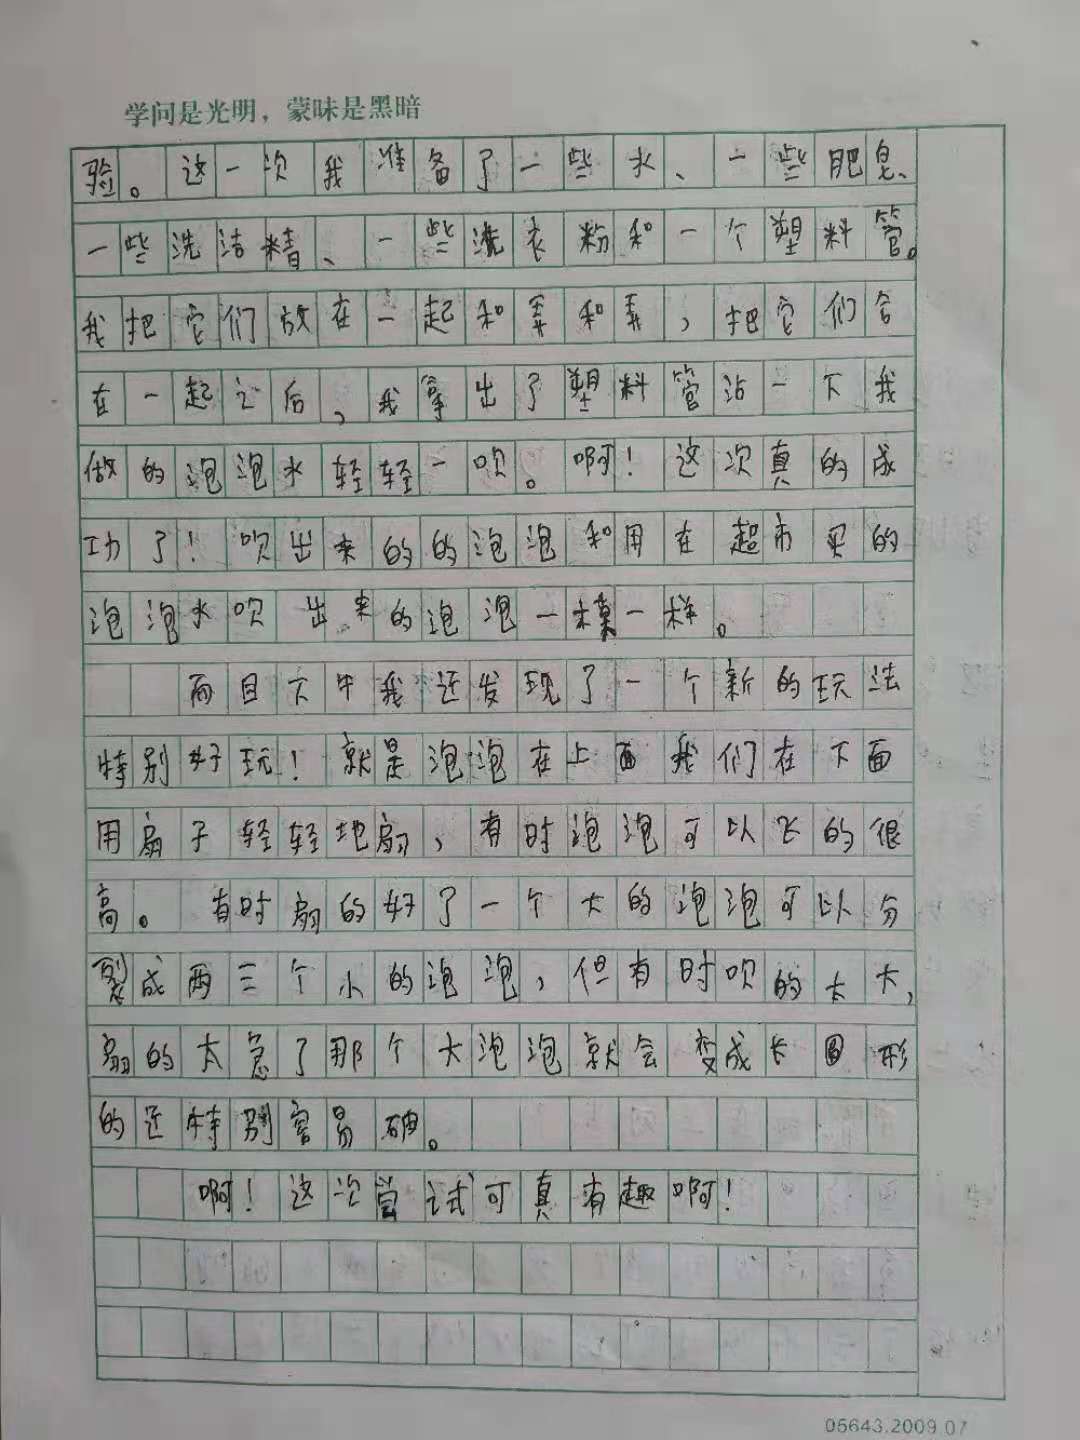 学问是光明，蒙昧是黑暗
验。这一次我准备了一些水、一些肥皂、
一些洗洁精、一些洗衣粉和一个塑料管。
我把它们放在一起和弄和弄，把它们合
在一起之后，我拿出了塑料管沾一下我
做的泡泡水轻轻一吹。啊！这次真的成
功了！吹出来的的泡泡和用在超市买的
泡泡水吹出来的泡泡一模一样。
而且下午我还发现了一个新的玩法
特别好玩！就是泡泡在上面我们在下面
用扇子轻轻地扇，有时泡泡可以飞的很
高。有时扇的好了一个大的泡泡可以分
裂成两三个小的泡泡，但有时吹的太大，
扇的太急了那个大泡泡就会变成长圆形
的还特别容易破。
啊！这次尝试可真有趣啊！
05643.2009.07